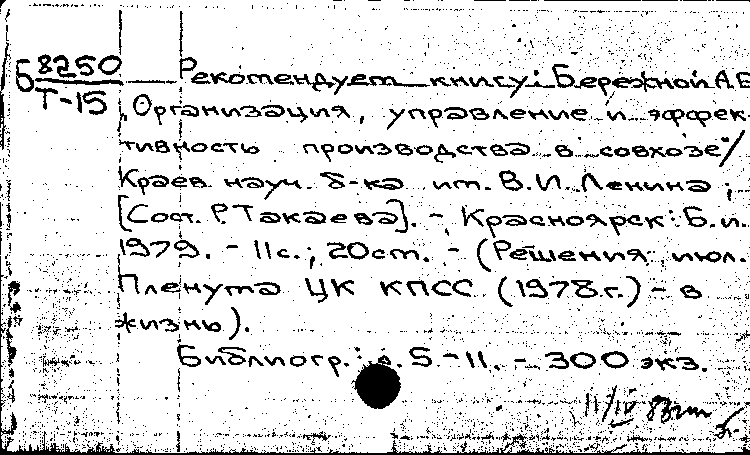 Б 8250
Т-15
Рекомендует книгу: Бережной А.Е.
„Организация, управление и эффек-
тивность производства в совхозе"/
Краев. науч. б-ка им. В.И. Ленина ;
[Сост. Р. Такаева]. - Красноярск: Б.и.
1979. - 11с.; 20см. - (Решения июл.
Пленума ЦК КПСС (1978г.) - в
жизнь).
Библиогр.: с. 5-11. - 300 экз.
11/IV 83